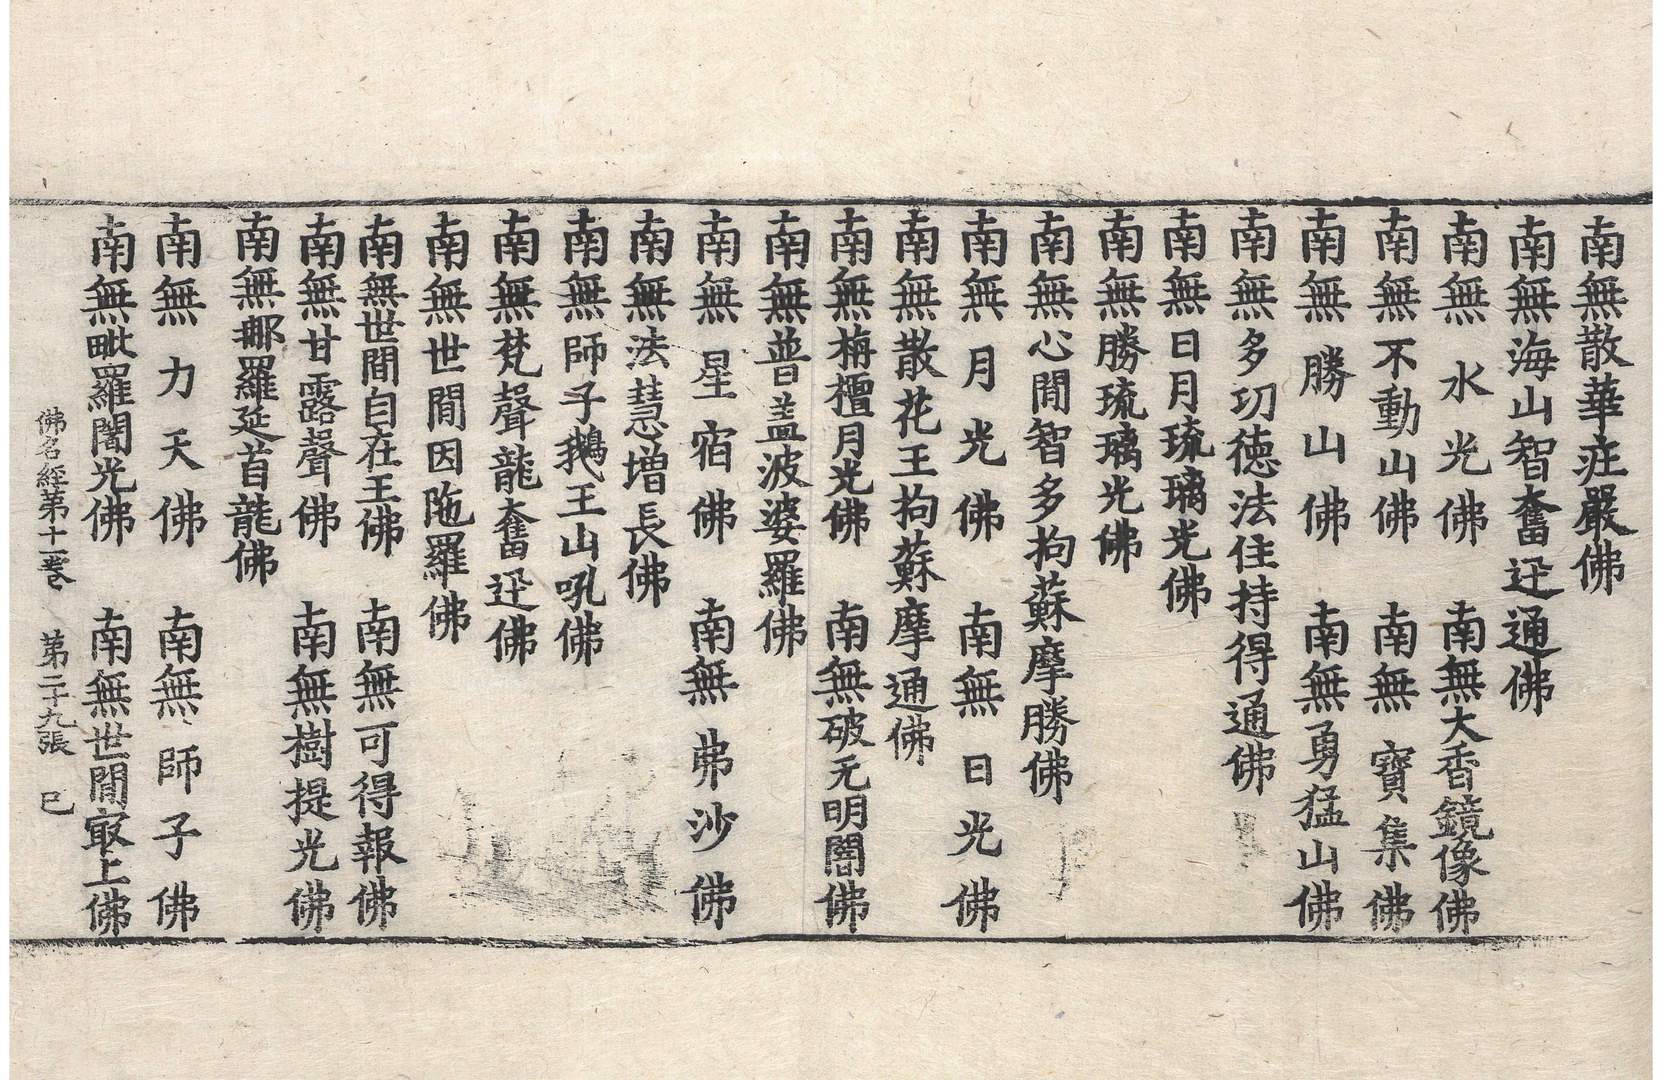 南無散華庄嚴佛
南無海山智奮迅通佛
南無水光佛　南無大香鏡像佛
南無不動山佛　南無寶集佛
南無勝山佛　南無勇猛山佛
南無多功德法住持得通佛
南無日月琉璃光佛
南無勝琉璃光佛
南無心閒智多拘蘇摩勝佛
南無月光佛　南無日光佛
南無散花王拘蘇摩通佛
南無栴檀月光佛　南無破无明闇佛
南無普盖波婆羅佛
南無星宿佛　南無弗沙佛
南無法慧增長佛
南無師子鵝王山吼佛
南無梵聲龍奮迅佛
南無世閒因陁羅佛
南無世閒自在王佛　南無可得報佛
南無甘露聲佛　南無樹提光佛
南無那羅延首龍佛
南無力天佛　南無師子佛
南無毗羅闍光佛　南無世閒㝡上佛
佛名經第十一卷　第二十九張　巳